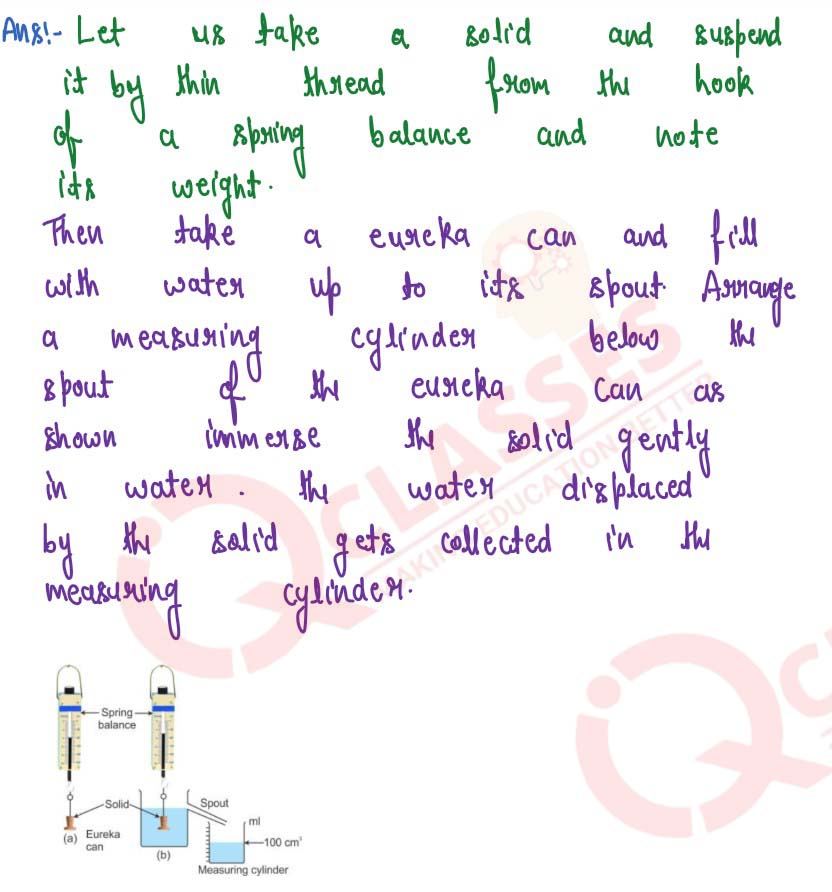 Ans:- Let us take a solid and suspend
it by thin thread from the hook
of a spring balance and note
its weight.
Then take a eureka can and fill
with water up to its spout. Arrange
a measuring cylinder below the
spout of the eureka can as
shown immerse the solid gently
in water. the water displaced
by the solid gets collected in the
measuring cylinder.
Spring
balance
Solid
Spout
ml
100 cm³
(a) Eureka
can
(b)
Measuring cylinder
CLASSES